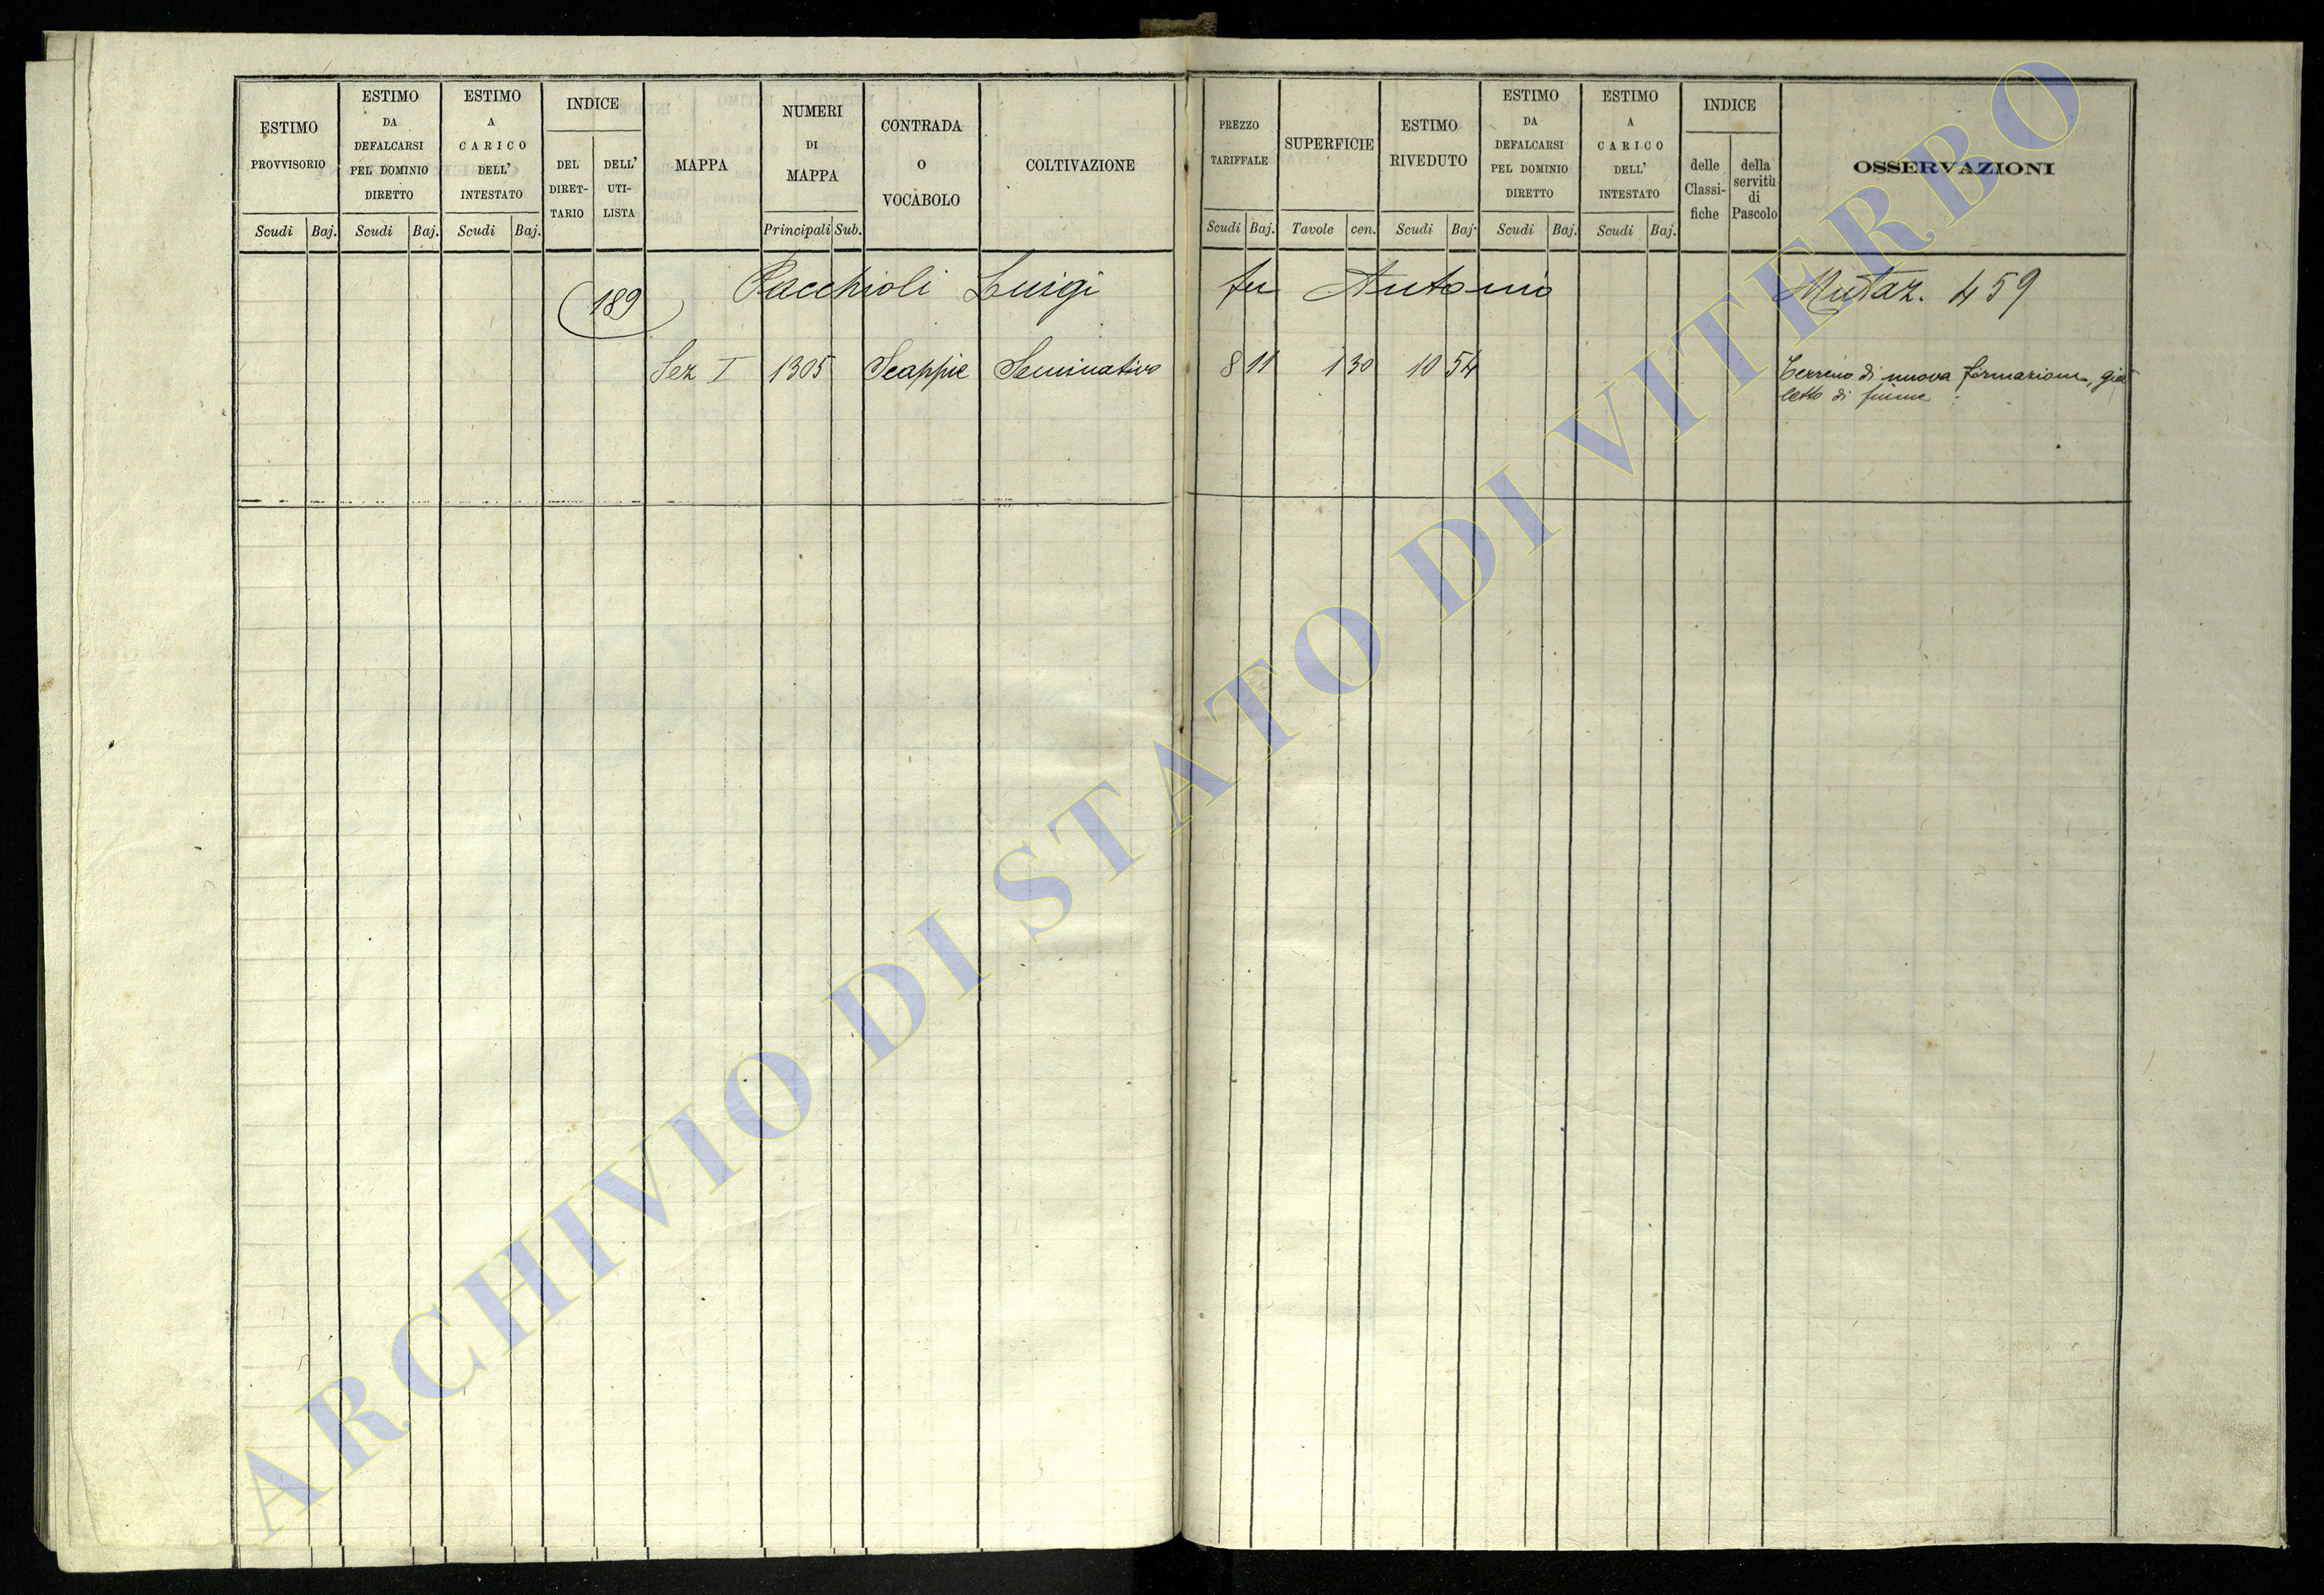 ESTIMO PROVVISORIO
Scudi Baj.
ESTIMO DA DEFALCARSI PEL DOMINIO DIRETTO
Scudi Baj.
ESTIMO A CARICO DELL' INTESTATO
Scudi Baj.
INDICE
DEL DIRET- TARIO
DELL' UTI- LISTA
MAPPA
NUMERI DI MAPPA
Principali Sub.
CONTRADA O VOCABOLO
COLTIVAZIONE
PREZZO TARIFFALE
Scudi Baj.
SUPERFICIE
Tavole cen.
ESTIMO RIVEDUTO
Scudi Baj.
ESTIMO DA DEFALCARSI PEL DOMINIO DIRETTO
Scudi Baj.
ESTIMO A CARICO DELL' INTESTATO
Scudi Baj.
INDICE
delle Classi- fiche
della servitù di Pascolo
OSSERVAZIONI
189 Pacchioli Luigi fu Antonio Mutaz. 459
Sez I 1305 Scappie Seminativo 8 11 1 30 10 54 Terreno di nuova formazione, già
letto di fiume
ARCHIVIO DI STATO DI VITERBO